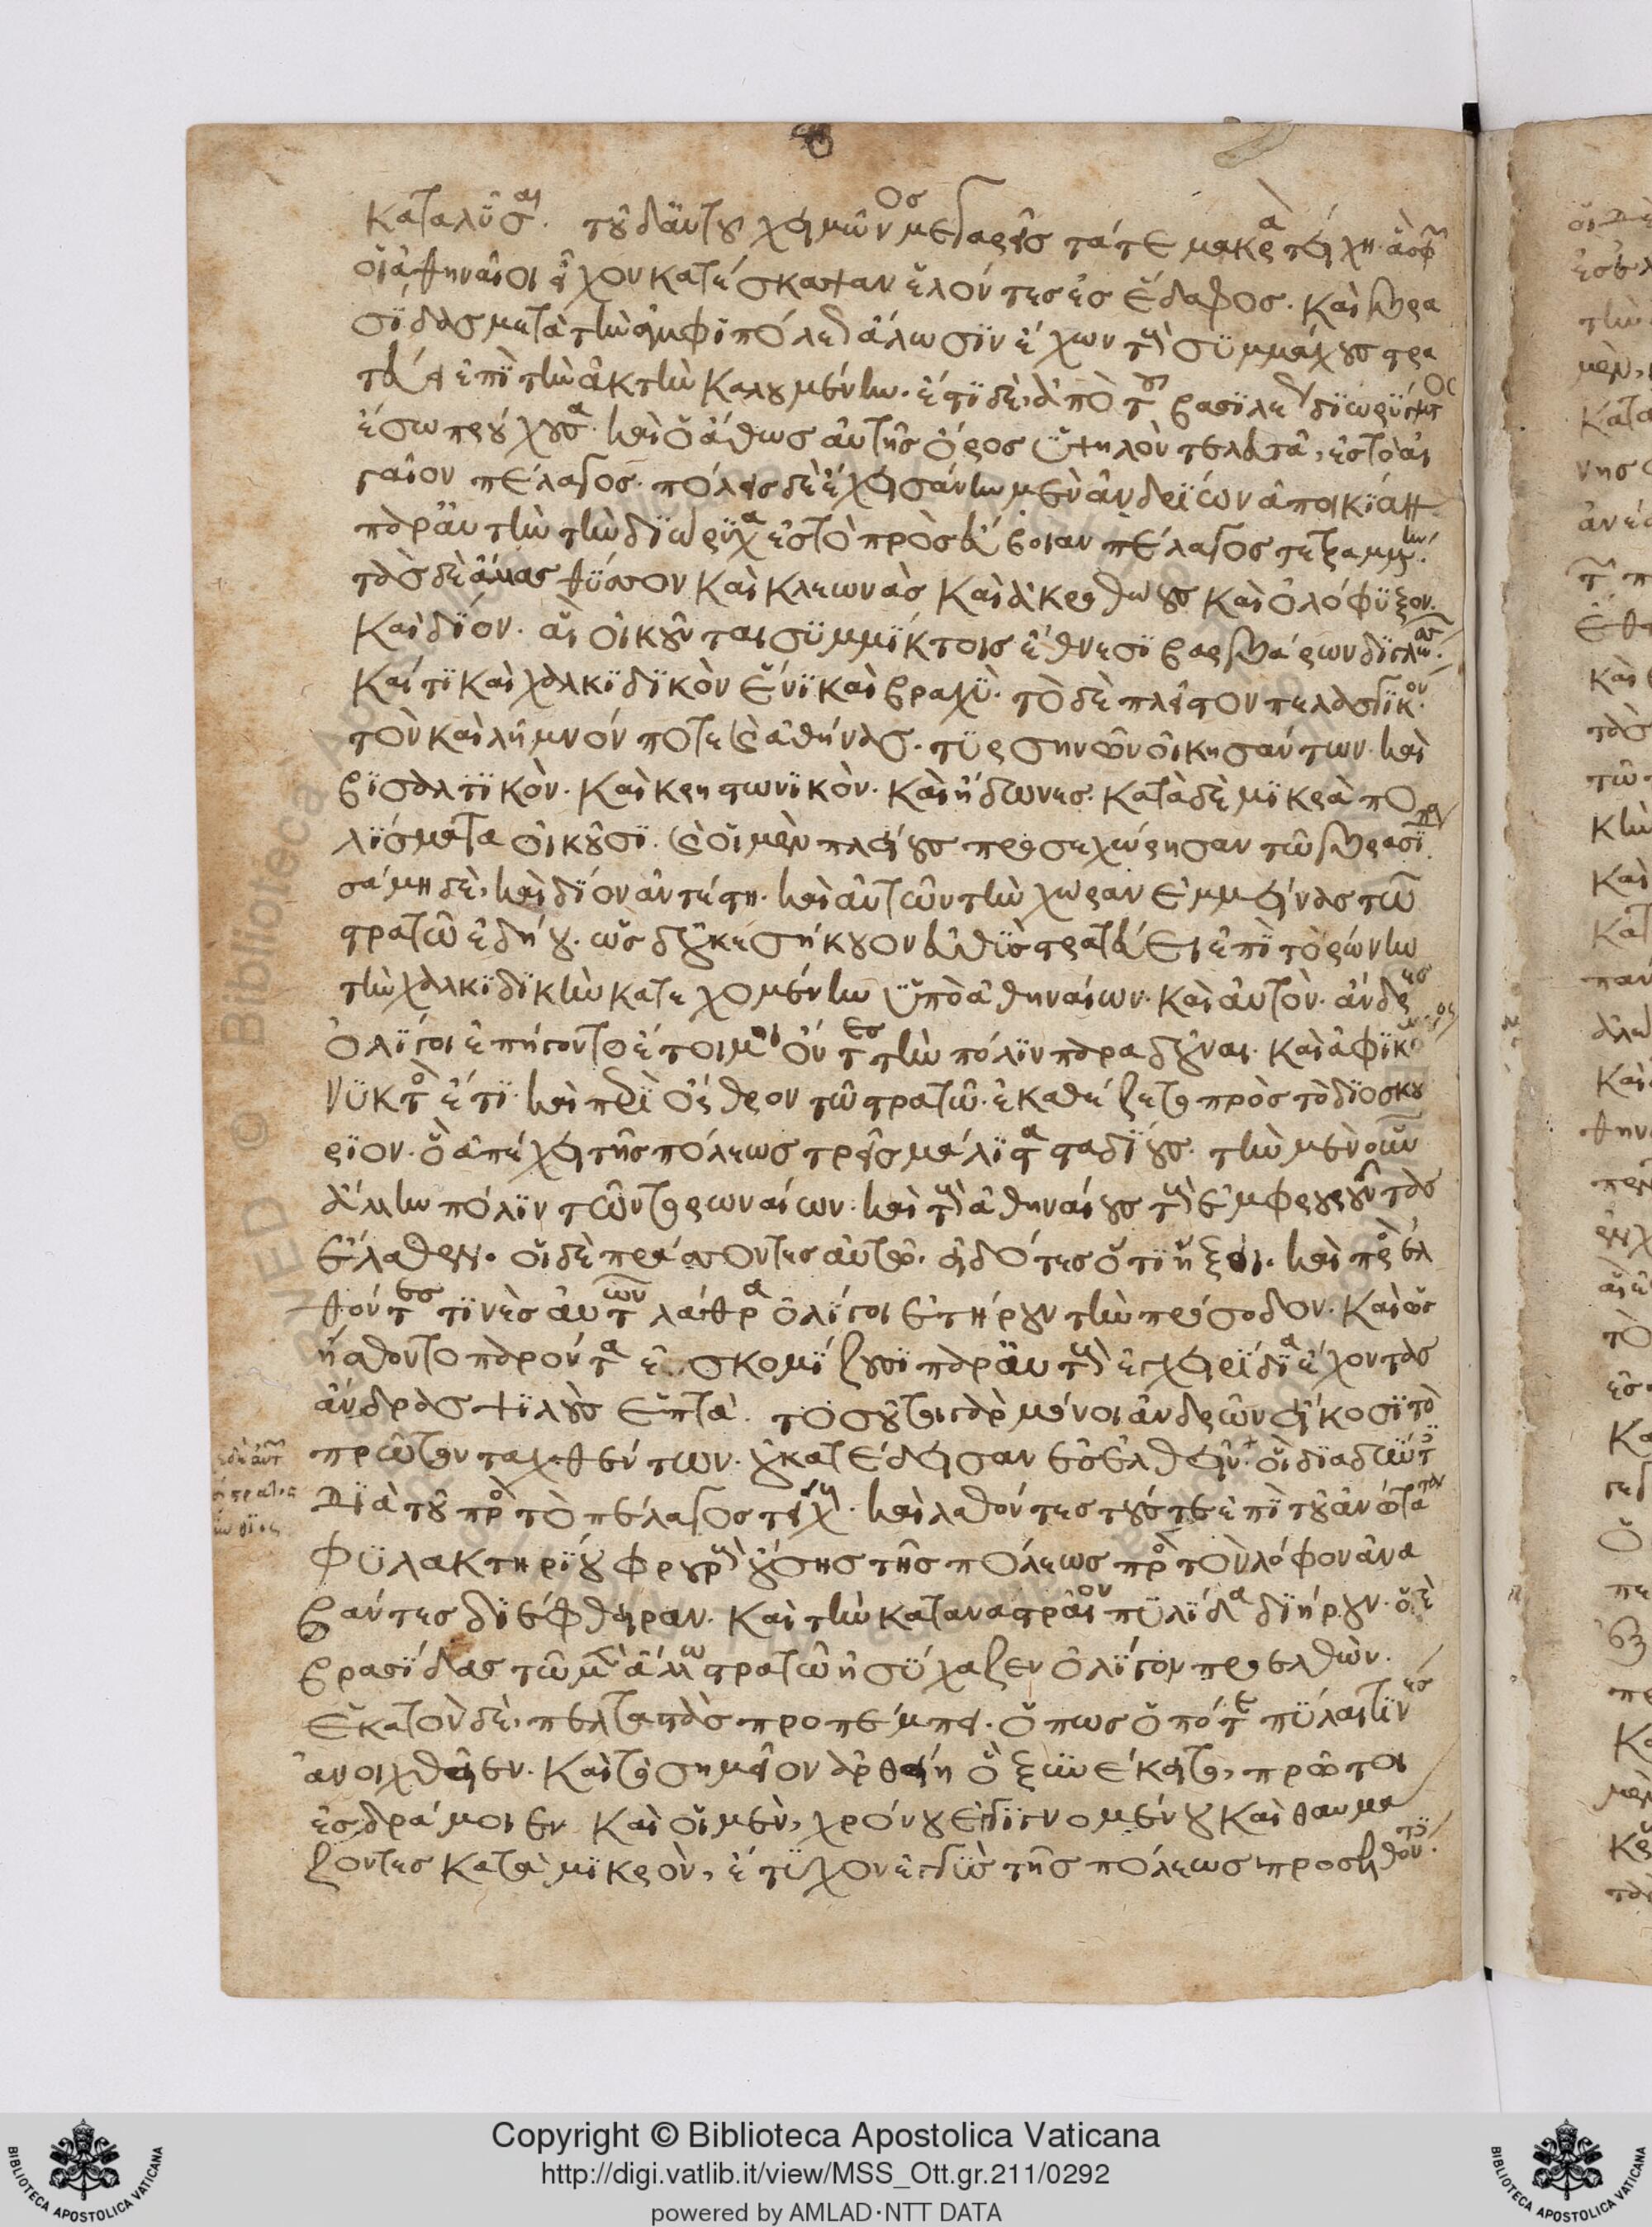 καταλῦσαι. τοῦ δ' αὐτοῦ χειμῶνος μεγαρεῖς τά τε μακρὰ τείχη. ἃ σφῶν
οἱ ἀθηναῖοι εἶχον κατέσκαψαν ἑλόντες ἐς ἔδαφος. καὶ βρα
σίδας μετὰ τὴν ἀμφιπόλεως ἅλωσιν ἔχων τοὺς συμμάχους στρα
τεύει ἐπὶ τὴν ἀκτὴν καλουμένην. ἔστι δὲ, ἀπὸ τοῦ βασιλέως διορύγματος
ἔσω προύχουσα. καὶ ὁ ἄθως αὐτῆς ὄρος ὑψηλὸν τελευτᾶ, ἐς τὸ αἰ
γαῖον πέλαγος. πόλεις δὲ ἔχει σάνην μὲν ἀνδρίων ἀποικίαν
παρ' αὐτὴν τὴν διώρυχα ἐς τὸ πρὸς εὔβοιαν πέλαγος τετραμμένην.
τὰς δὲ ἄλλας θύσσον καὶ κλεωνὰς καὶ ἀκροθώους καὶ ὀλόφυξον.
καὶ δίον. αἳ οἰκοῦνται συμμίκτοις ἔθνεσι βαρβάρων διγλώσσων.
καί τι καὶ χαλκιδικὸν ἔνι καὶ βραχύ. τὸ δὲ πλεῖστον πελασγικόν.
τῶν καὶ λῆμνόν ποτε καὶ ἀθήνας. τυρσηνῶν οἰκησάντων. καὶ
βισαλτικὸν. καὶ κρηστωνικὸν. καὶ ἤδωνες. κατὰ δὲ μικρὰ πο
λίσματα οἰκοῦσι. καὶ οἱ μὲν πλείους προσεχώρησαν τῶ βρασί
σάνη δὲ, καὶ δίον ἀντέστη. καὶ αὐτῶν τὴν χώραν ἐμμείνας τῶ
στρατῶ ἐδήου. ὡς δ' οὐκ ἐσήκουον εὐθὺς στρατεύει ἐπὶ τορώνην
τὴν χαλκιδικὴν κατεχομένην ὑπὸ ἀθηναίων. καὶ αὐτὸν. ἄνδρες
ὀλίγοι ἐπήγοντο ἑτοῖμοι ὄντες τὴν πόλιν παραδοῦναι. καὶ ἀφικόμενος
νυκτὸς ἔτι. καὶ περὶ ὄρθρον τῶ στρατῶ. ἐκαθέζετο πρὸς τὸ διοσκού
ριον. ὃ ἀπέχει τῆς πόλεως τρεῖς μάλιστα σταδίους. τὴν μὲν οὖν
ἄλλην πόλιν τῶν τορωναίων. καὶ τοὺς ἀθηναίους τοὺς ἐμφρουροῦντας
ἔλαθεν. οἱ δὲ πράσσοντες αὐτῶ. εἰδότες ὅτι ἥξει. καὶ προελ
θόντες τινὲς αὐτῶν λάθρα ὀλίγοι ἐτήρουν τὴν πρόσοδον. καὶ ὡς
ᾔσθοντο παρόντα ἐσκομίζουσι παρ' αὐτοὺς ἐγχειρίδια ἔχοντας
ἄνδρας ψιλοὺς ἑπτά. τοσοῦτοι γὰρ μόνοι ἀνδρῶν εἴκοσι τὸ
πρῶτον ταχθέντων. οὐ κατέδεισαν ἐσελθεῖν. οἳ διαδύντες
διὰ τοῦ πρὸς τὸ πέλαγος τείχους. καὶ λαθόντες τούς τε ἐπὶ τοῦ ἀνωτάτου
φυλακτηρίου φρουροὺς οὔσης τῆς πόλεως πρὸς τὸν λόφον ἀνα
βάντες διέφθειραν. καὶ τὴν κατὰ καναστραῖον πυλίδα διήρουν. ὁ δὲ
βρασίδας τῶ μὲν ἄλλω στρατῶ ἡσύχαζεν ὀλίγον προελθὼν.
ἑκατὸν δὲ, πελταστὰς προπέμπει. ὅπως ὁπότε πύλαι τινὲς
ἀνοιχθεῖεν. καὶ τὸ σημεῖον ἀρθείη ὃ ξυνέκειτο, πρῶτοι
ἐσδράμοιεν καὶ οἱ μὲν, χρόνου ἐγγιγνομένου καὶ θαυμά
ζοντες κατὰ μικρὸν, ἔτυχον ἐγγὺς τῆς πόλεως προσελθόντες.
Copyright © Biblioteca Apostolica Vaticana
http://digi.vatlib.it/view/MSS_Ott.gr.211/0292
powered by AMLAD·NTT DATA